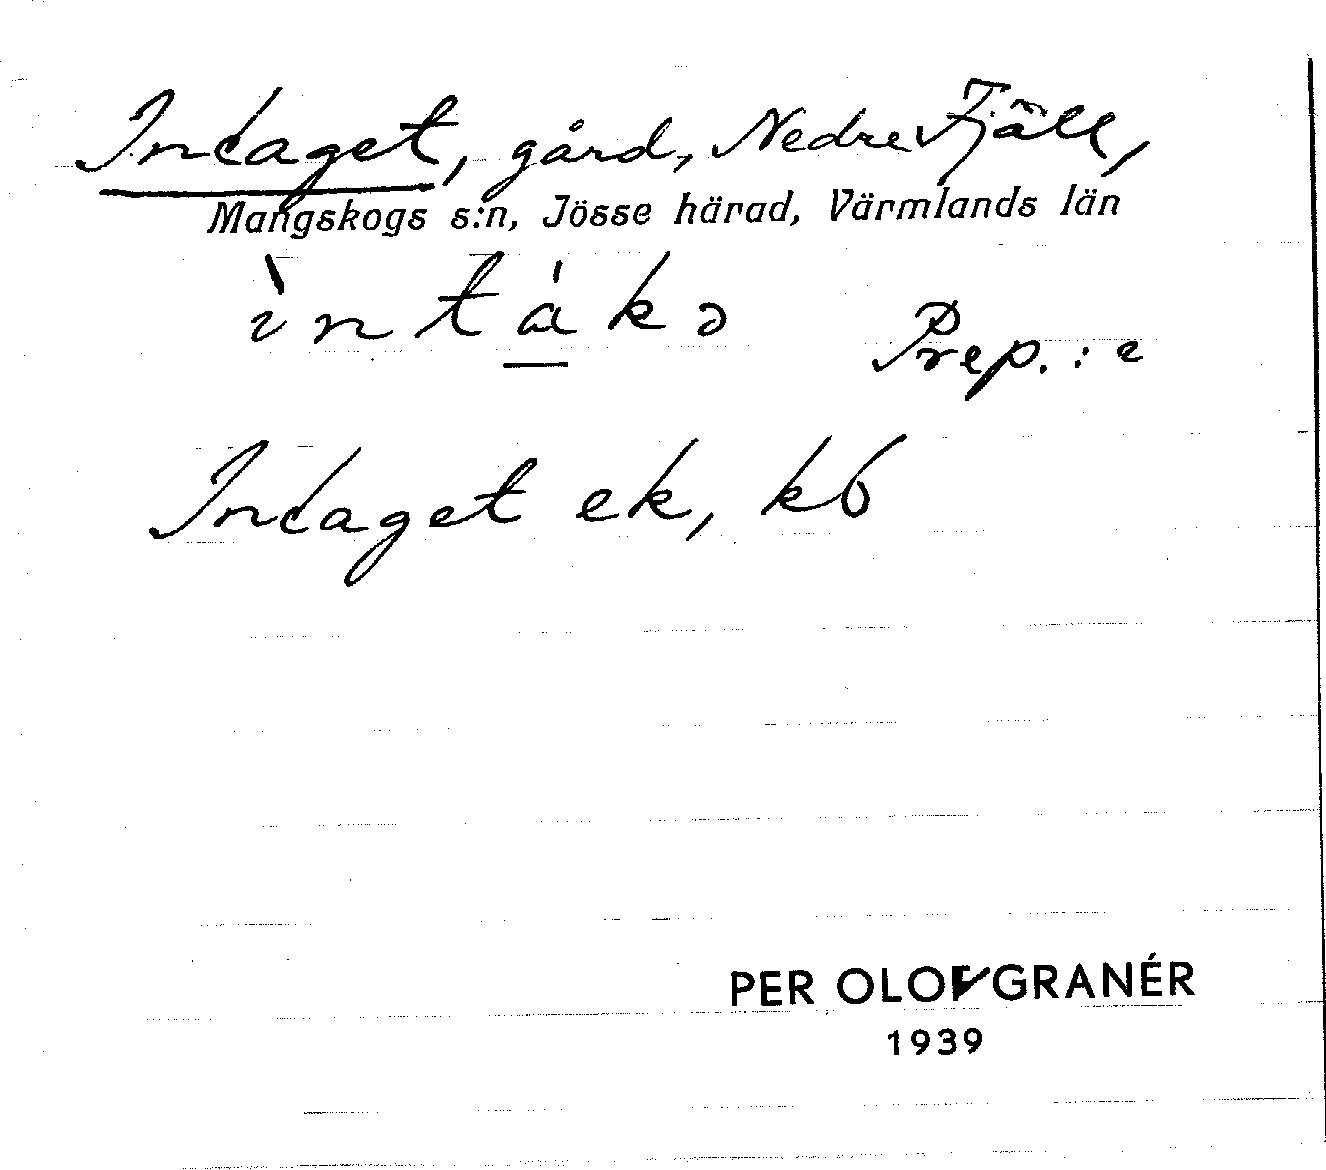 Intaget, gård, Nedre Fjäll,
Mangskogs s:n, Jösse härad, Värmlands län
ìntákə Prep.: i
Intaget ek, kb
PER OLOV GRANÉR
1939